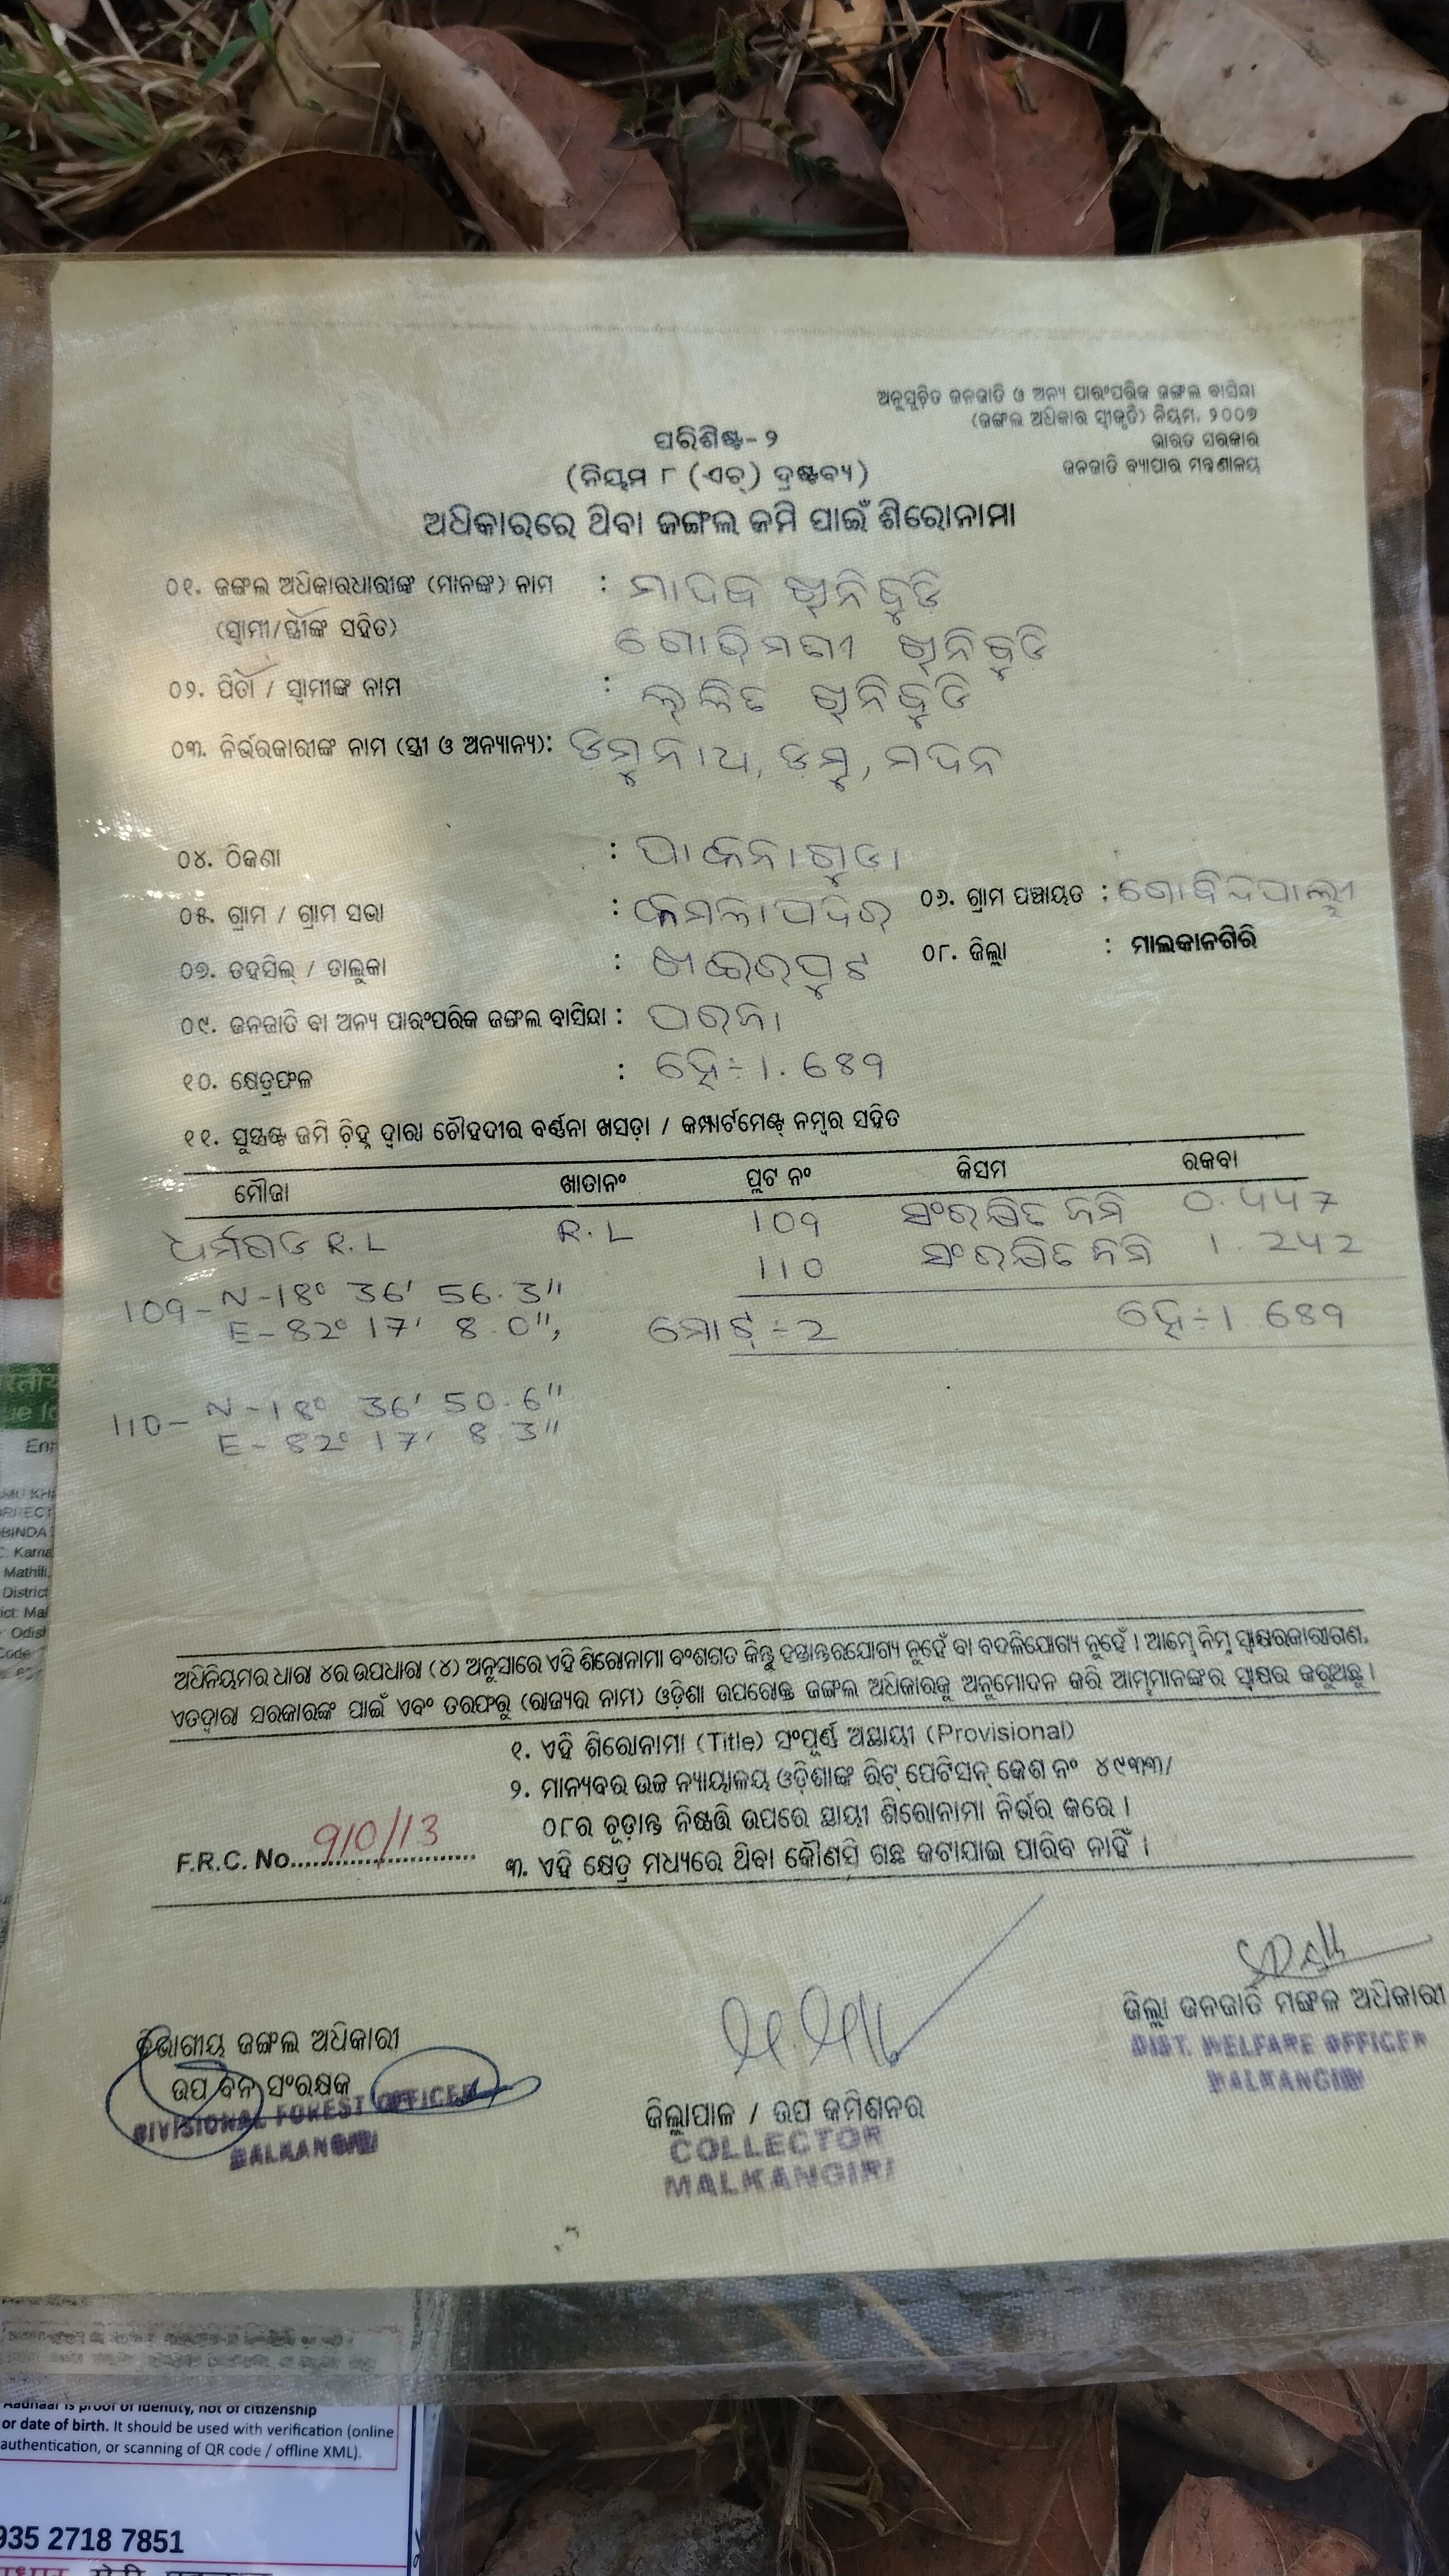 ଅନୁସୂଚିତ ଜନଜାତି ଓ ଅନ୍ୟ ପାରଂପରିକ ଜଙ୍ଗଲ ବାସିନ୍ଦା
(ଜଙ୍ଗଲ ଅଧିକାର ସ୍ୱୀକୃତି) ନିୟମ, ୨୦୦୭
ଭାରତ ସରକାର
ଜନଜାତି ବ୍ୟାପାର ମନ୍ତ୍ରଣାଳୟ
ପରିଶିଷ୍ଟ-୨
(ନିୟମ ୮ (ଏଚ୍) ଦ୍ରଷ୍ଟବ୍ୟ)
ଅଧିକାରରେ ଥିବା ଜଙ୍ଗଲ ଜମି ପାଇଁ ଶିରୋନାମା
୦୧. ଜଙ୍ଗଲ ଅଧିକାରଧାରୀଙ୍କ (ମାନଙ୍କ) ନାମ :
(ସ୍ୱାମୀ/ସ୍ତ୍ରୀଙ୍କ ସହିତ)
୦୨. ପିତା / ସ୍ୱାମୀଙ୍କ ନାମ :
୦୩. ନିର୍ଭରକାରୀଙ୍କ ନାମ (ସ୍ତ୍ରୀ ଓ ଅନ୍ୟାନ୍ୟ): ମଦନ
୦୪. ଠିକଣା :
୦୫. ଗ୍ରାମ / ଗ୍ରାମ ସଭା :
୦୬. ଗ୍ରାମ ପଞ୍ଚାୟତ : ଗୋବିନ୍ଦପାଲ୍ଲୀ
୦୭. ତହସିଲ୍ / ତାଲୁକା : ଖଇରପୁଟ
୦୮. ଜିଲ୍ଲା : ମାଲକାନଗିରି
୦୯. ଜନଜାତି ବା ଅନ୍ୟ ପାରଂପରିକ ଜଙ୍ଗଲ ବାସିନ୍ଦା : ପରଜା
୧୦. କ୍ଷେତ୍ରଫଳ : ହେ÷ 1.689
୧୧. ସୁସ୍ପଷ୍ଟ ଜମି ଚିହ୍ନ ଦ୍ୱାରା ଚୌହଦୀର ବର୍ଣ୍ଣନା ଖସଡ଼ା / କମ୍ପାର୍ଟମେଣ୍ଟ୍ ନମ୍ବର ସହିତ
ମୌଜା ଖାତାନଂ ପ୍ଲଟ ନଂ କିସମ ରକବା
R.L R.L 109 ସଂରକ୍ଷିତ ଜମି 0.447
110 ସଂରକ୍ଷିତ ଜମି 1.242
109- N-18° 36' 56.3"
E-82° 17' 8.0",
ମୋଟ୍ ÷ 2 ହେ÷ 1.689
110- N-18° 36' 50.6"
E-82° 17' 8.3"
ଅଧିନିୟମର ଧାରା ୪ର ଉପଧାରା (୪) ଅନୁସାରେ ଏହି ଶିରୋନାମା ବଂଶଗତ କିନ୍ତୁ ହସ୍ତାନ୍ତରଯୋଗ୍ୟ ନୁହେଁ ବା ବଦଳିଯୋଗ୍ୟ ନୁହେଁ । ଆମ୍ଭେ ନିମ୍ନ ସ୍ୱାକ୍ଷରକାରୀଗଣ,
ଏତଦ୍ୱାରା ସରକାରଙ୍କ ପାଇଁ ଏବଂ ତରଫରୁ (ରାଜ୍ୟର ନାମ) ଓଡ଼ିଶା ଉପରୋକ୍ତ ଜଙ୍ଗଲ ଅଧିକାରକୁ ଅନୁମୋଦନ କରି ଆମ୍ଭମାନଙ୍କର ସ୍ୱାକ୍ଷର କରୁଅଛୁ ।
୧. ଏହି ଶିରୋନାମା (Title) ସଂପୂର୍ଣ୍ଣ ଅସ୍ଥାୟୀ (Provisional)
୨. ମାନ୍ୟବର ଉଚ୍ଚ ନ୍ୟାୟାଳୟ ଓଡ଼ିଶାଙ୍କ ରିଟ୍ ପେଟିସନ୍ କେଶ ନଂ ୪୯୩୩/
୦୮ର ଚୂଡ଼ାନ୍ତ ନିଷ୍ପତ୍ତି ଉପରେ ସ୍ଥାୟୀ ଶିରୋନାମା ନିର୍ଭର କରେ ।
୩. ଏହି କ୍ଷେତ୍ର ମଧ୍ୟରେ ଥିବା କୌଣସି ଗଛ କଟାଯାଇ ପାରିବ ନାହିଁ ।
F.R.C. No. 910/13
ଜିଲ୍ଲା ଜନଜାତି ମଙ୍ଗଳ ଅଧିକାରୀ
DIST. WELFARE OFFICER
MALKANGIRI
ବିଭାଗୀୟ ଜଙ୍ଗଲ ଅଧିକାରୀ
ଉପ ବନ ସଂରକ୍ଷକ
DIVISIONAL FOREST OFFICER
MALKANGIRI
ଜିଲ୍ଲାପାଳ / ଉପ କମିଶନର
COLLECTOR
MALKANGIRI
Aadhaar is proof of identity, not of citizenship
or date of birth. It should be used with verification (online
authentication, or scanning of QR code / offline XML).
935 2718 7851